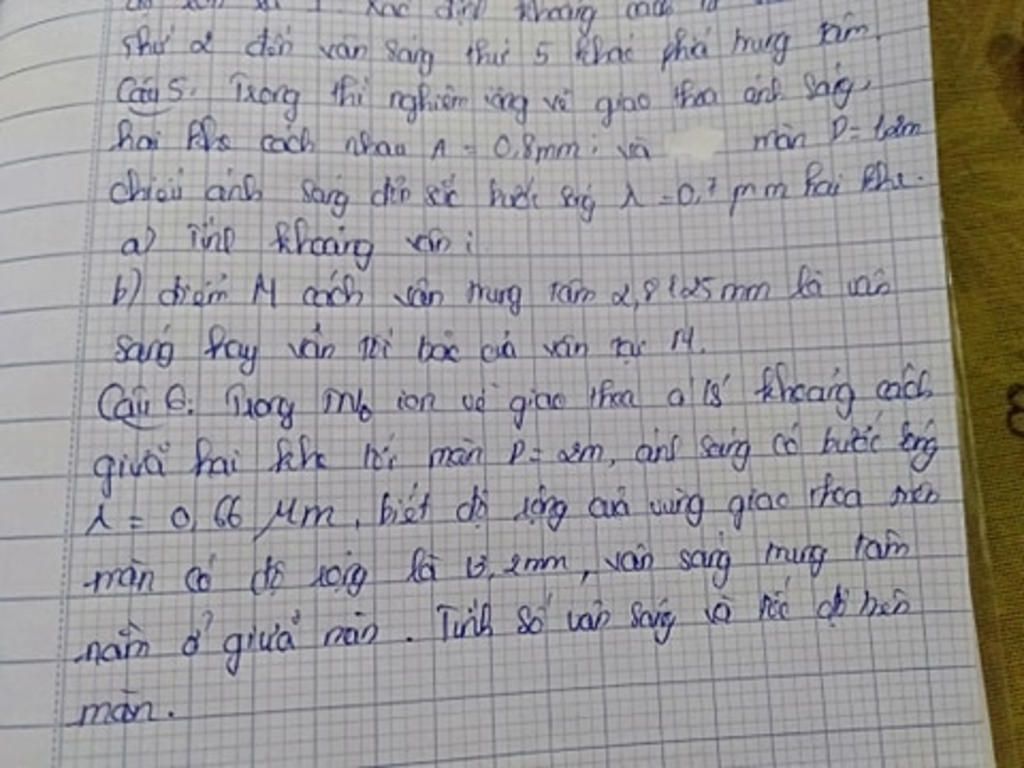 Xác định khoảng cách từ
thứ 2 đến vân sáng thứ 5 khác phía trung tâm.
Câu 5. Trong thí nghiệm iâng về giao thoa ánh sáng,
hai khe cách nhau = 0,8mm và màn D =
chiếu ánh sáng đơn sắc bước sóng λ = 0,7 μm hai khe.
a) Tính khoảng vân i
b) điểm M cách vân trung tâm 2,8125mm là vân
sáng hay vân tối bậc của vân tại M.
Câu 6. Trong ion về giao thoa khoảng cách
giữa hai khe tới màn D = 2m, ánh sáng có bước sóng
λ = 0,66 μm, biết độ rộng của vùng giao thoa trên
màn có độ rộng là 13,2mm, vân sáng trung tâm
nằm ở giữa màn. Tính số vân sáng và tối độ trên
màn.